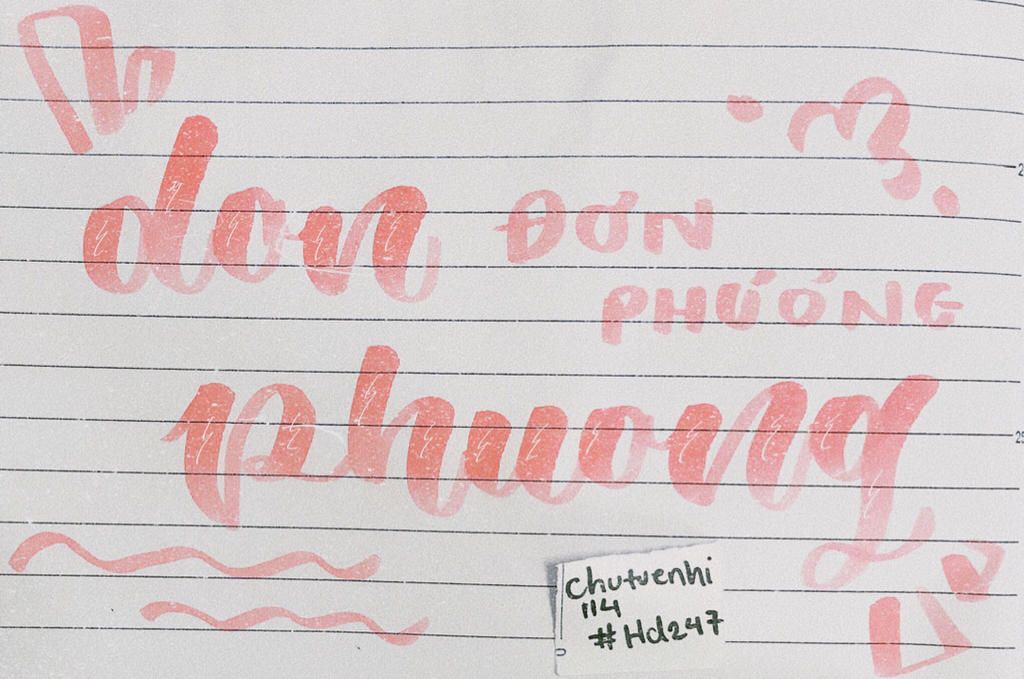 don
ĐƠN
PHƯƠNG
phuong
chutuenhi
114
#Hd247